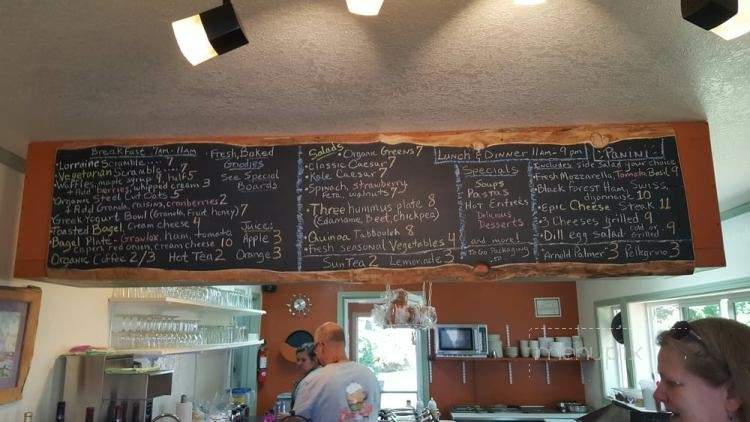 Breakfast 7am-11am
Lorraine Scramble.... 7
Vegetarian Scramble
Waffles, maple syrup 8, half 5
+ add berries, whipped cream 3
Organic Steel Cut Oats 5
+ Add Granola, raisins, cranberries 2
Greek Yogurt Bowl (Granola Fruit honey) 7
Toasted Bagel, cream cheese 4
Bagel Plate - Gravlox, ham, tomato
capers, red onion, cream cheese 10
Organic Coffee 2/3 Hot Tea 2
Fresh Baked
Goodies
See Special
Boards
Juice:
Apple 3
Orange 3
Salads
Organic Greens 7
Classic Caesar 7
Kale Caesar 7
Spinach, strawberry
feta, walnuts 7
Three hummus plate 8
(Edamame, Beet, chickpea)
Quinoa Tabbouleh 8
Fresh seasonal Vegetables 4
Sun Tea 2 Lemonade 3
Lunch & Dinner 11am-9pm
Specials
Soups
Pastas
Hot Entrées
Delicious
Desserts
and more!
To Go Packaging
Panini
Includes side salad your choice
Fresh Mozzarella, Tomato Basil 9
Black Forest Ham, Swiss,
Dijonnaise 10
Epic Cheese Steak 11
3 Cheeses grilled 9
Dill egg salad Cold or Grilled 9
Arnold Palmer 3 Pellegrino 3